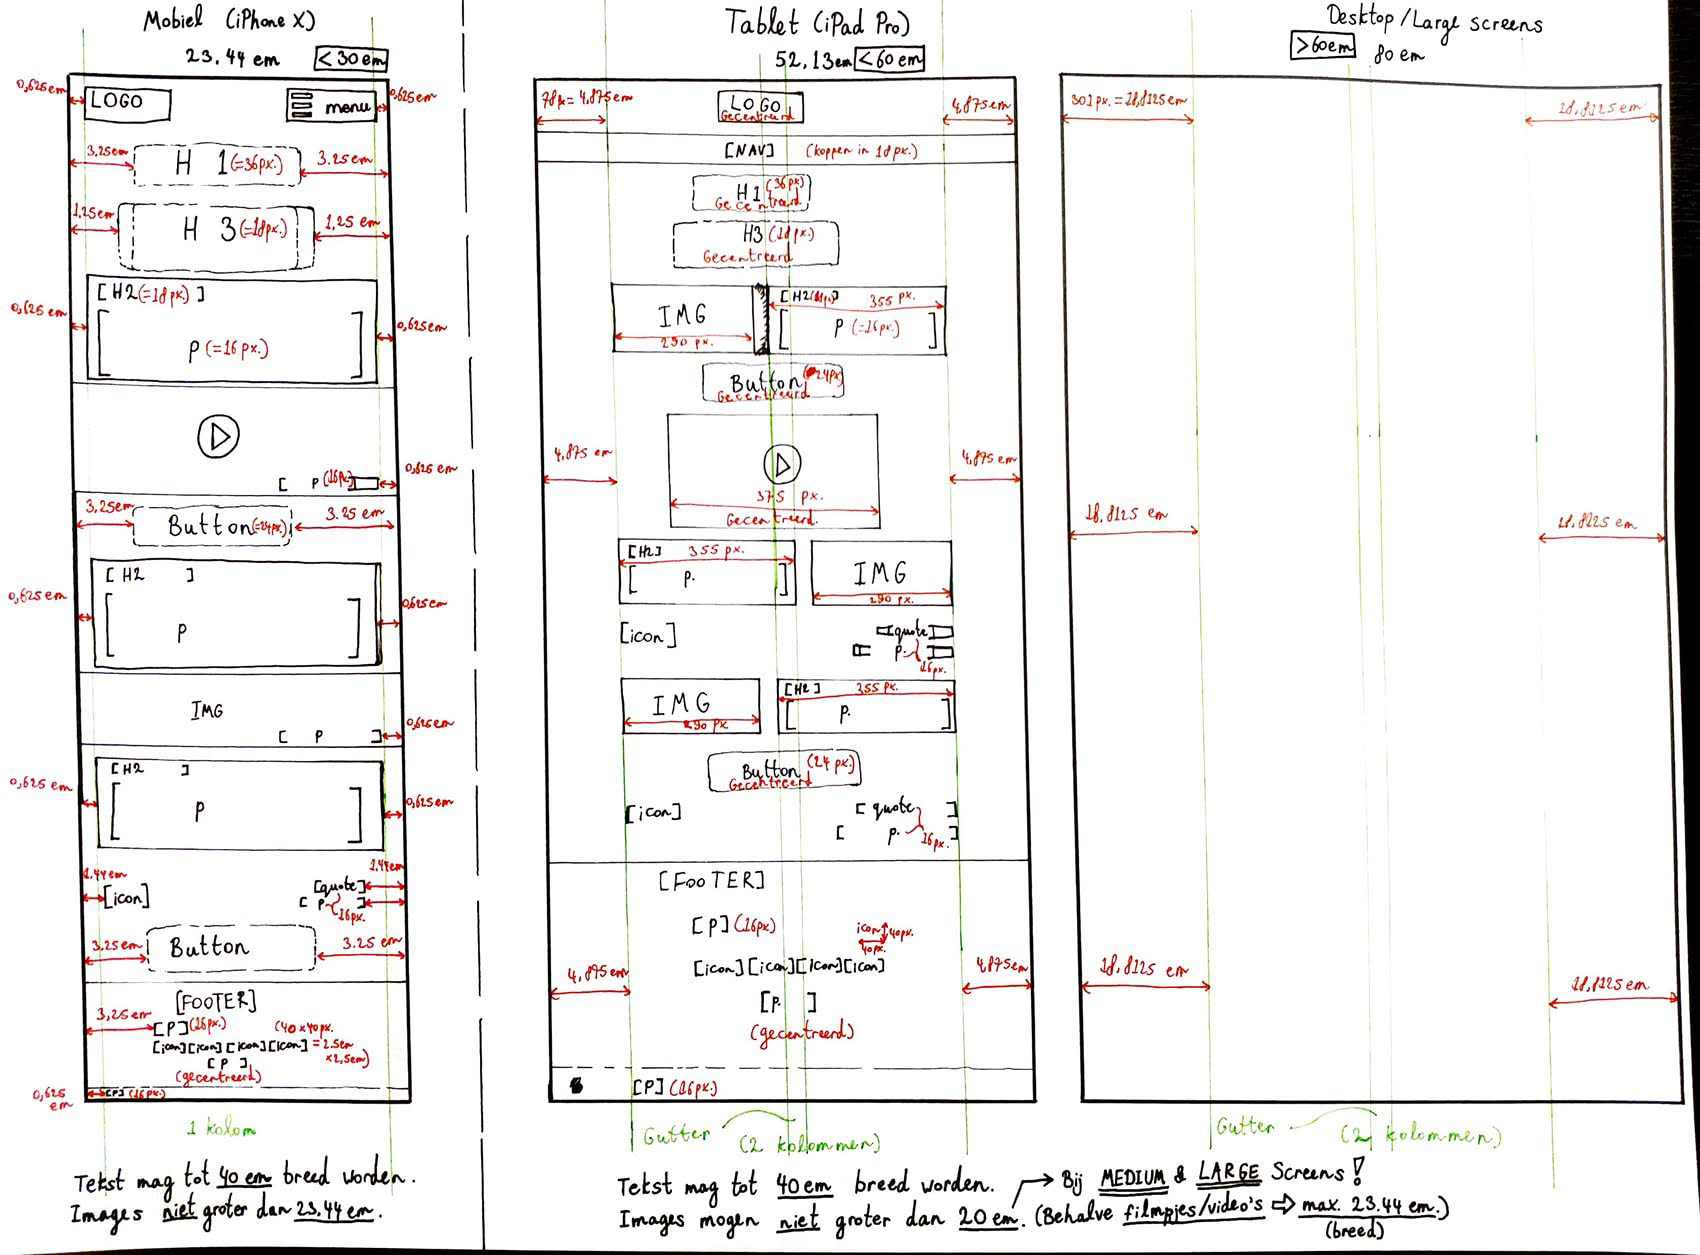 Mobiel (iPhone X)
23.44 em
< 30em
0,625em
0,625em
LOGO
menu
3.25em
H 1 (=36px.)
3.25em
1,25em
H 3 (=18px.)
1,25 em
[H2 (=18px.) ]
0,625em
0,625em
[ P (=16px.) ]
0,625em
[ P (16px.) ]
3,25em
Button (=24px.)
3.25 em
[H2 ]
0,625em
0,625em
[ P ]
IMG
0,625em
[ P ]
[H2 ]
0,625em
0,625em
[ P ]
1.44em
1.44em
[icon]
[quote]
[ P ]
16px.
3,25em
Button
3.25 em
[FOOTER]
3,25em
[P] (16px.)
(40x40px.
[icon][icon][icon][icon] = 2.5em
x2,5em)
[P ]
(gecentreerd)
0,625
em
[P] (16px.)
1 kolom
Tekst mag tot 40 em breed worden.
Images niet groter dan 23.44 em.
Tablet (iPad Pro)
52,13em
< 60 em
78px = 4,875em
LOGO
Gecentreerd
4,875em
[NAV] (koppen in 18px.)
H1 (36px)
Gecentreerd
H3 (18px.)
Gecentreerd
IMG
290 px.
[H2 ] 355 px.
[ P (=16px.) ]
Button (24px)
Gecentreerd
4,875 em
4,875 em
375 px.
Gecentreerd.
[H2] 355 px.
[ P. ]
IMG
290 px.
[icon]
[quote]
[ P. ]
16px.
IMG
290 px
[H2 ] 355 px.
[ P. ]
Button (24 px.)
Gecentreerd
[icon]
[ quote ]
[ P. ]
16px.
[FOOTER]
[P] (16px)
icon 40px.
40px.
[icon][icon][icon][icon]
4,875em
4,875em
[P. ]
(gecentreerd)
[P] (16px.)
Gutter (2 kolommen)
Tekst mag tot 40em breed worden.
Images mogen niet groter dan 20 em.
→ Bij MEDIUM & LARGE Screens!
(Behalve filmpjes/video's ⇒ max. 23.44 em.)
(breed)
Desktop/Large screens
>60em
80 em
301 px. = 18,8125em
18,8125em
18,8125 em
18,8125em
18,8125 em
18,8125em
Gutter (2 kolommen)